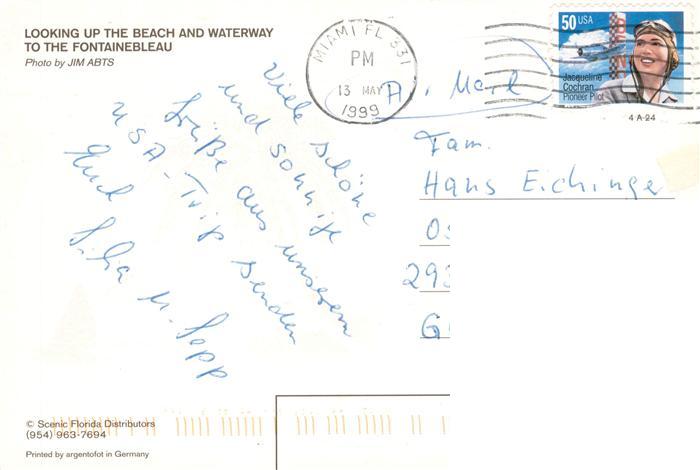 LOOKING UP THE BEACH AND WATERWAY
TO THE FONTAINEBLEAU
Photo by JIM ABTS
MIAMI FL 331
PM
13 MAY
1999
50 USA
Jacqueline
Cochran
Pioneer Pilot
4 A-24
Viele schöne
und sonnige
Grüße aus unserem
USA-Trip senden
Euch
u. Sepp
Fam.
Hans Eichinger
293
G
© Scenic Florida Distributors
(954) 963-7694
Printed by argentofot in Germany